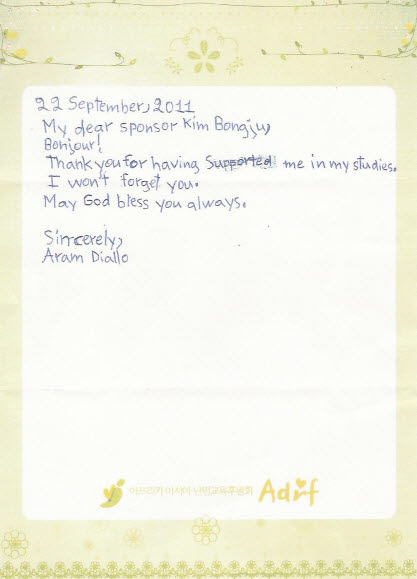 22 September, 2011
My dear sponsor Kim Bongju,
Bonjour!
Thank you for having Supported me in my studies.
I won't forget you.
May God bless you always.
Sincerely,
Aram Diallo
아프리카 아시아 난민교육후원회 Adrf